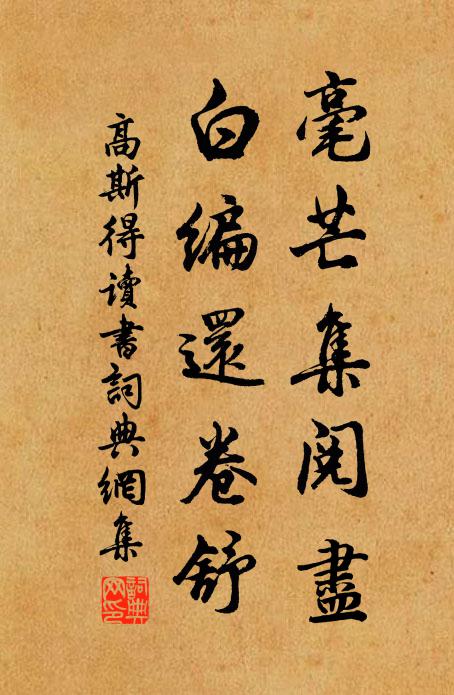 毫芒集閱盡
白編還卷舒
高斯得讀書詞典網集
詞典網印